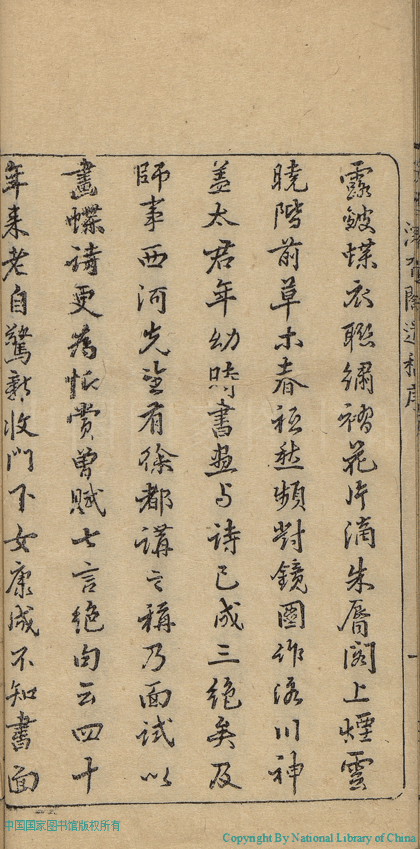 露皴蝶衣聯繡褶花片滴朱脣閣上煙雲
曉階前草木春祗愁頻對鏡圖作洛川神
蓋太君年幼時書畫与詩已成三絕矣及
師事西河先生有徐都講之稱乃面試以
畫蝶詩更為忻賞曾賦七言絕句云四十
年来老自驚新收門下女康成不知書面
中国国家图书馆版权所有
Copyright By National Library of China